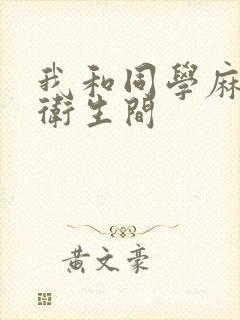 我和同學麻
衛生間
黃文豪